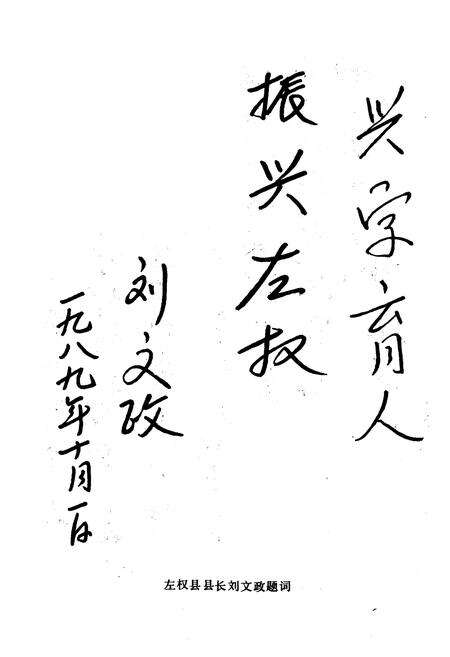 兴学育人
振兴左权
刘文政
一九八九年十月一日
左权县县长刘文政题词